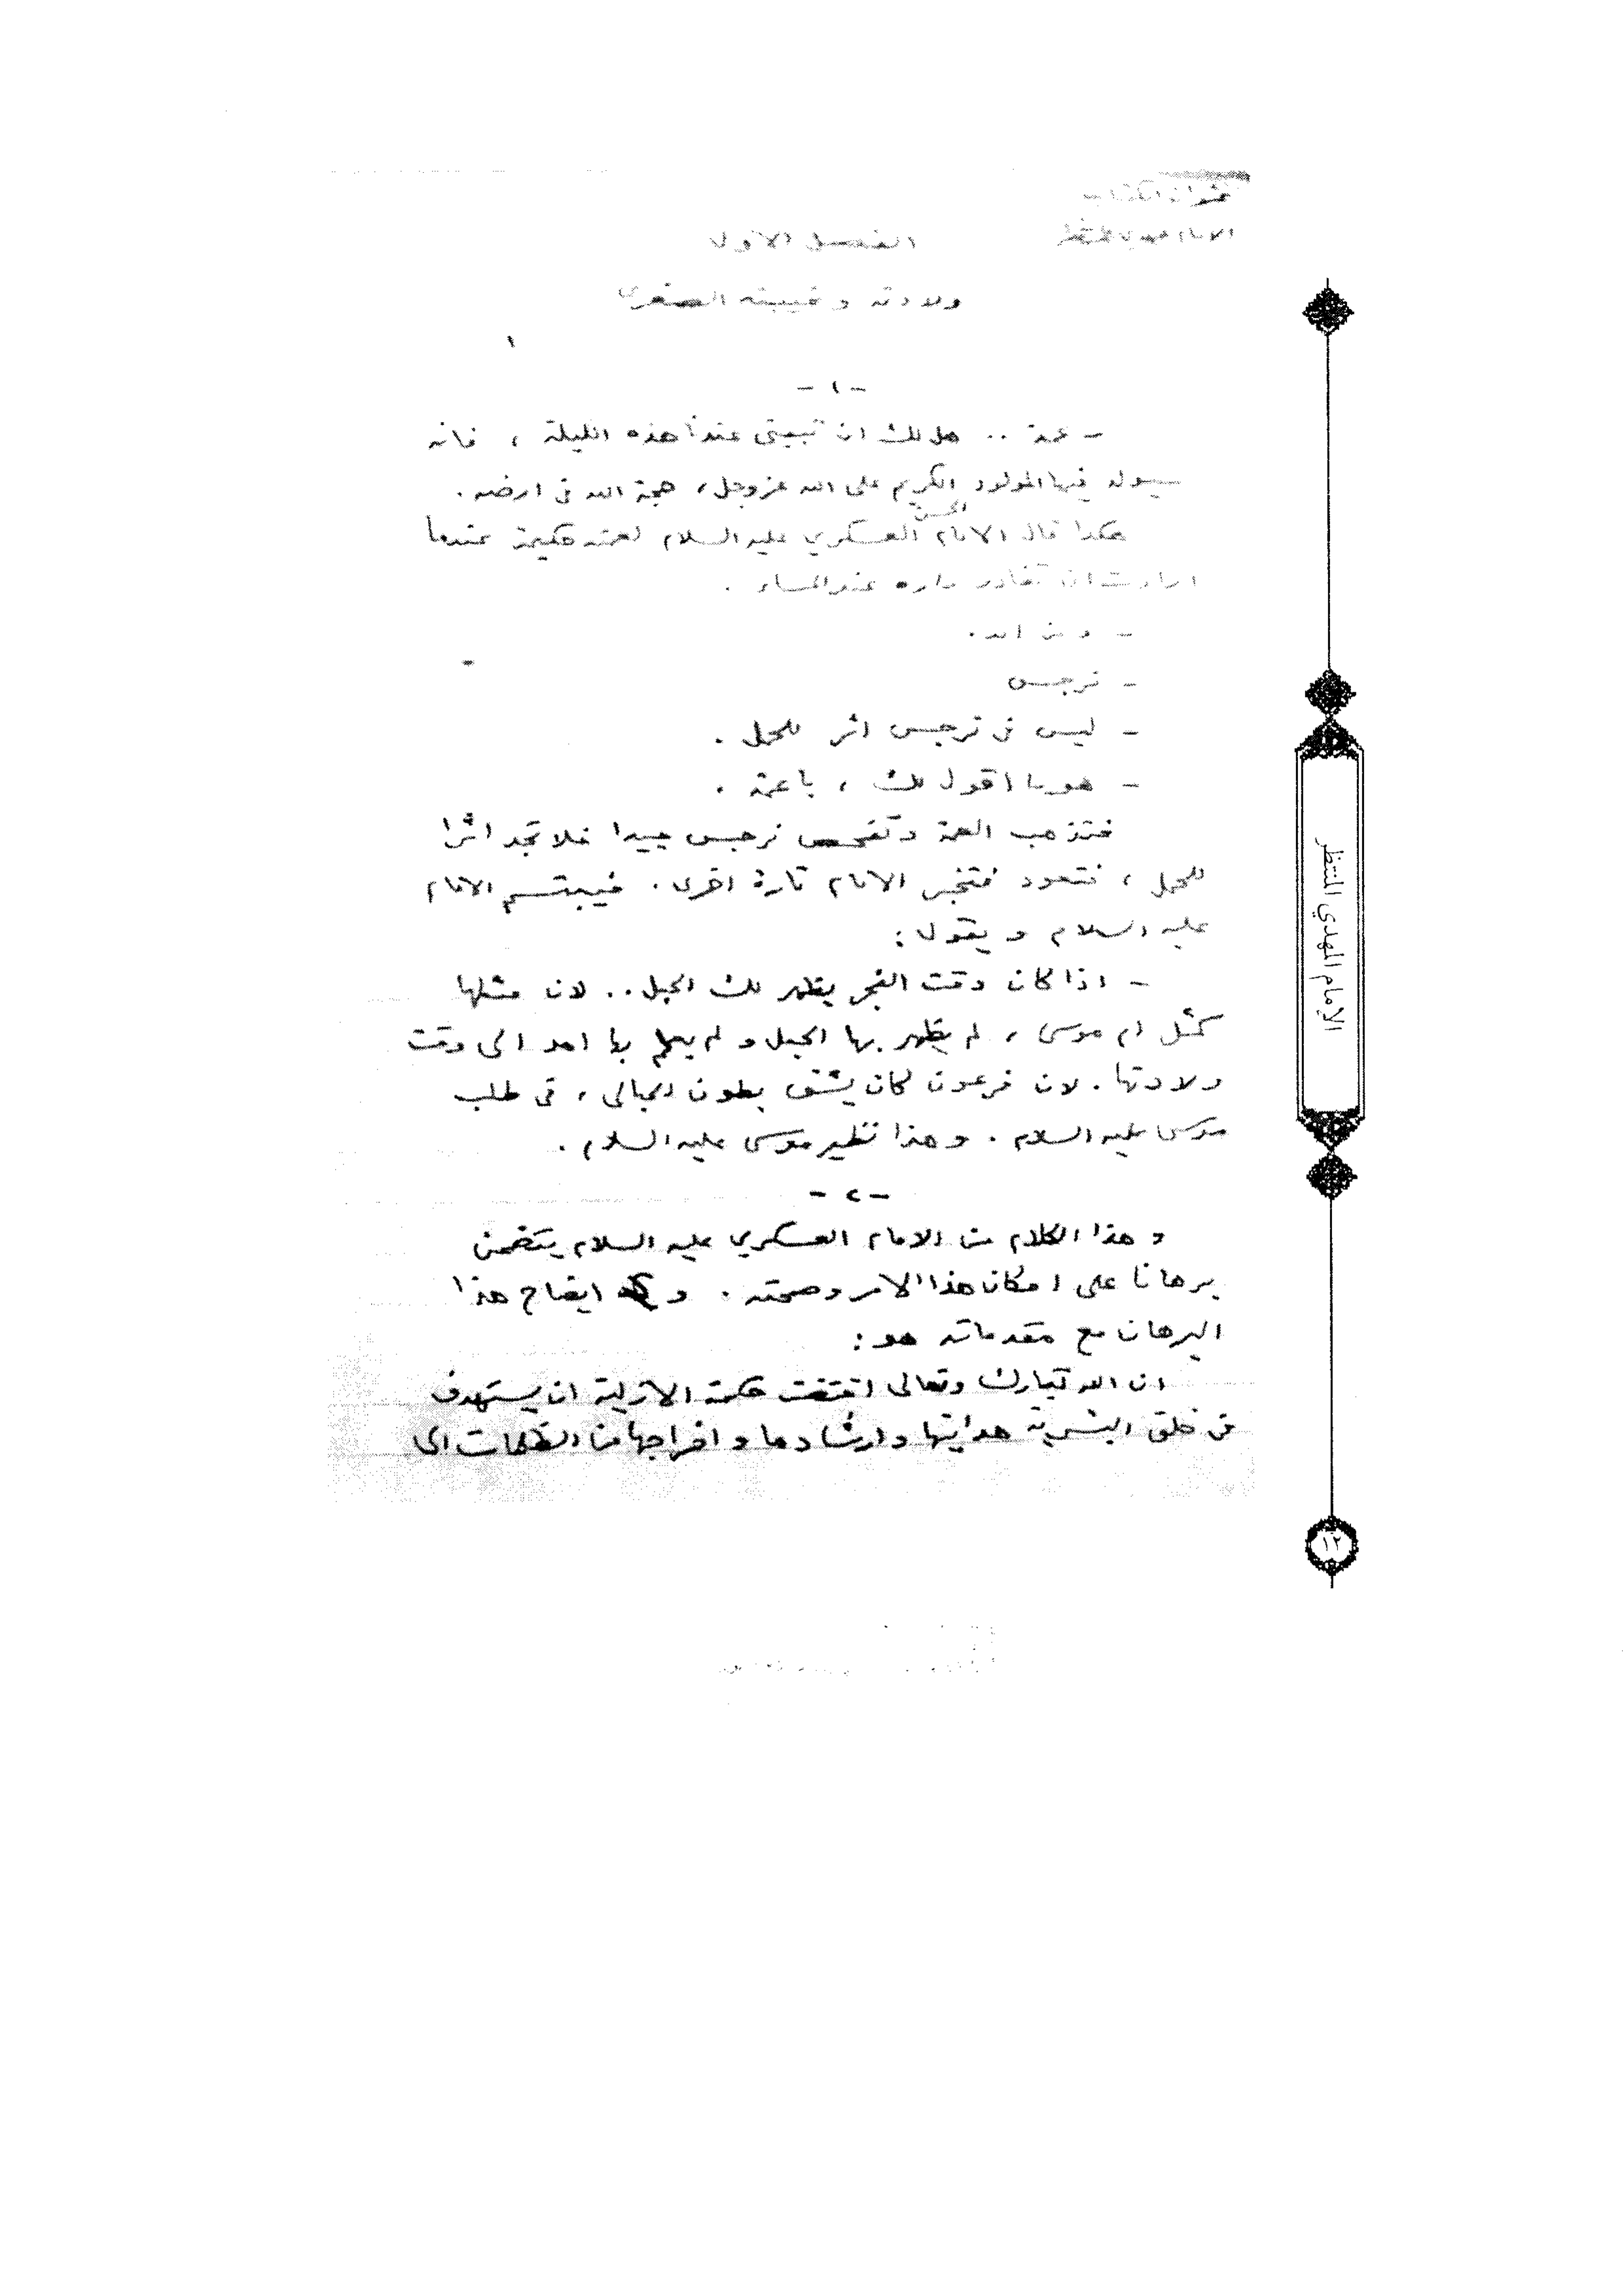 عنوان الكتاب
الامام المهدي المنتظر
الفصل الاول
ولادته و غيبته الصغرى
١
- ١ -
- عمة .. هل لك ان تبيتي عندنا هذه الليلة ، فانه
سيولد فيها المولود الكريم على الله عز وجل ، حجة الله في ارضه .
هكذا قال الامام الحسن العسكري عليه السلام لعمته حكيمة عندما
ارادت ان تغادر داره عند المساء .
- ومن امه .
- نرجس
- ليس في نرجس اثر للحمل .
- هو ما اقول لك ، يا عمة .
فتذهب العمة وتفحص نرجس جيدا فلا تجد اثرا
للحمل ، فتعود فتخبر الامام تارة اخرى . فيبتسم الامام
عليه السلام و يقول :
- اذا كان وقت الفجر يظهر لك الحبل .. لان مثلها
كمثل ام موسى ، لم يظهر بها الحبل و لم يعلم بها احد الى وقت
ولادتها . لان فرعون كان يشق بطون الحبالى ، في طلب
موسى عليه السلام . و هذا نظير موسى عليه السلام .
- ٢ -
و هذا الكلام من الامام العسكري عليه السلام يتضمن
برهانا على امكان هذا الامر وصحته . و ايضاح هذا
البرهان مع مقدماته هو :
ان الله تبارك وتعالى اقتضت حكمته الازلية ان يستهدف
في خلق البشرية هدايتها وارشادها و اخراجها من الظلمات الى
الإمام المهدي المنتظر
١٢